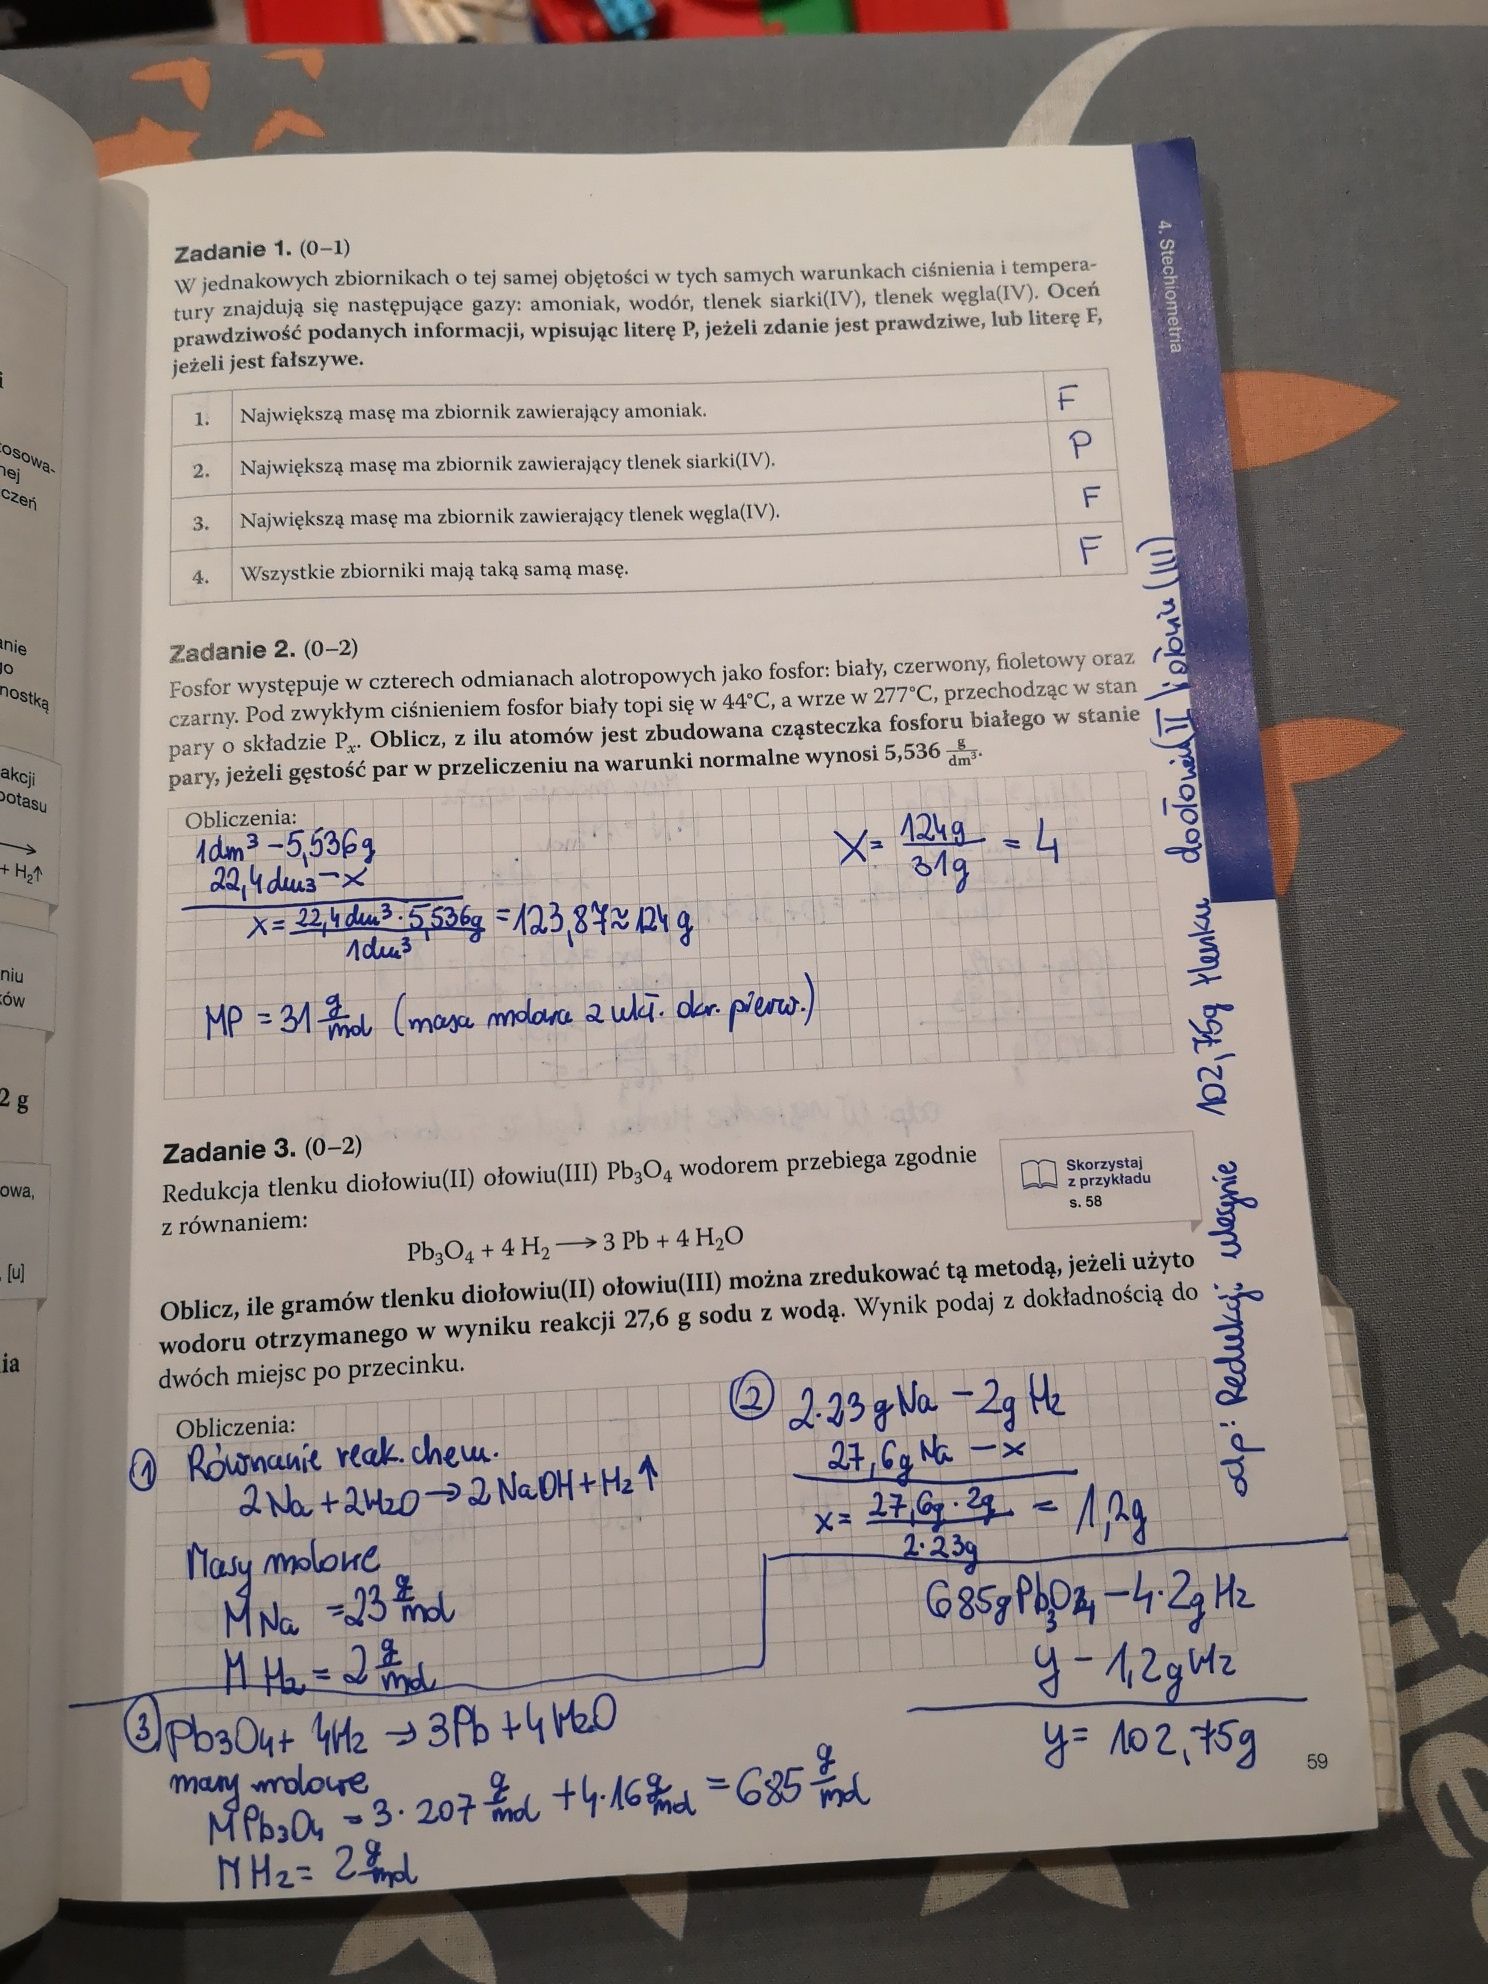 4. Stechiometria
Zadanie 1. (0–1)
W jednakowych zbiornikach o tej samej objętości w tych samych warunkach ciśnienia i tempera-
tury znajdują się następujące gazy: amoniak, wodór, tlenek siarki(IV), tlenek węgla(IV). Oceń
prawdziwość podanych informacji, wpisując literę P, jeżeli zdanie jest prawdziwe, lub literę F,
jeżeli jest fałszywe.
1. Największą masę ma zbiornik zawierający amoniak. F
2. Największą masę ma zbiornik zawierający tlenek siarki(IV). P
3. Największą masę ma zbiornik zawierający tlenek węgla(IV). F
4. Wszystkie zbiorniki mają taką samą masę. F
Zadanie 2. (0–2)
Fosfor występuje w czterech odmianach alotropowych jako fosfor: biały, czerwony, fioletowy oraz
czarny. Pod zwykłym ciśnieniem fosfor biały topi się w 44°C, a wrze w 277°C, przechodząc w stan
pary o składzie Pₓ. Oblicz, z ilu atomów jest zbudowana cząsteczka fosforu białego w stanie
pary, jeżeli gęstość par w przeliczeniu na warunki normalne wynosi 5,536 g/dm³.
Obliczenia:
1dm³ – 5,536g
22,4dm3 – x
x = 22,4dm³·5,536g / 1dm³ = 123,87 ≈ 124g
X = 124g / 31g = 4
MP = 31 g/mol (masa molowa z ukł. okr. pierw.)
Zadanie 3. (0–2)
Redukcja tlenku diołowiu(II) ołowiu(III) Pb₃O₄ wodorem przebiega zgodnie
z równaniem:
Skorzystaj
z przykładu
s. 58
Pb₃O₄ + 4 H₂ ⟶ 3 Pb + 4 H₂O
Oblicz, ile gramów tlenku diołowiu(II) ołowiu(III) można zredukować tą metodą, jeżeli użyto
wodoru otrzymanego w wyniku reakcji 27,6 g sodu z wodą. Wynik podaj z dokładnością do
dwóch miejsc po przecinku.
Obliczenia:
① Równanie reak. chem.
2Na + 2H₂O → 2NaOH + H₂↑
Masy molowe
MNa = 23 g/mol
MH₂ = 2 g/mol
② 2·23gNa – 2gH₂
27,6gNa – x
x = 27,6g·2g / 2·23g = 1,2g
③ Pb₃O₄ + 4H₂ → 3Pb + 4H₂O
masy molowe
MPb₃O₄ = 3·207 g/mol + 4·16 g/mol = 685 g/mol
MH₂ = 2 g/mol
685gPb₃O₄ – 4·2gH₂
y – 1,2gH₂
y = 102,75g
odp: Redukcji ulegnie 102,75g tlenku diołowiu(II) ołowiu(III)
59